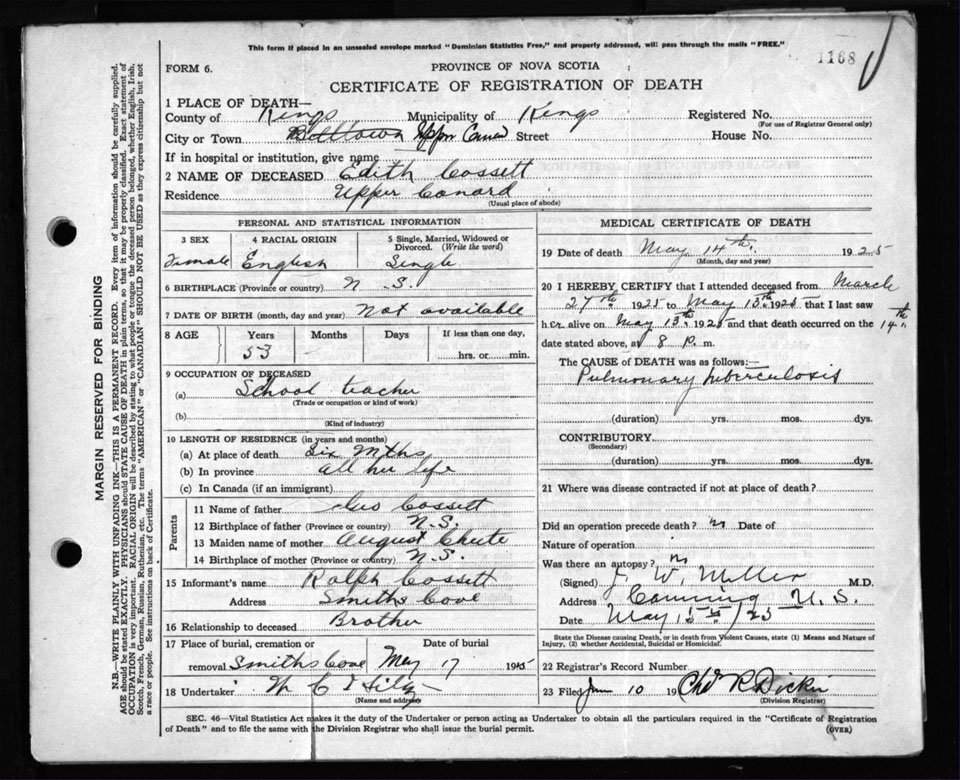 This form if placed in an unsealed envelope marked "Dominion Statistics Free," and properly addressed, will pass through the mails "FREE."
1168
FORM 6.
PROVINCE OF NOVA SCOTIA
CERTIFICATE OF REGISTRATION OF DEATH
1 PLACE OF DEATH—
County of Kings Municipality of Kings Registered No.
(For use of Registrar General only)
City or Town Upper Street House No.
If in hospital or institution, give name
2 NAME OF DECEASED Edith Cossett
Residence Upper Canard
(Usual place of abode)
PERSONAL AND STATISTICAL INFORMATION
3 SEX 4 RACIAL ORIGIN 5 Single, Married, Widowed or Divorced. (Write the word)
Female English Single
6 BIRTHPLACE (Province or country) N.S.
7 DATE OF BIRTH (month, day and year) Not available
8 AGE Years Months Days If less than one day,
53 - hrs. or min.
9 OCCUPATION OF DECEASED
(a) School teacher
(Trade or occupation or kind of work)
(b)
(Kind of industry)
10 LENGTH OF RESIDENCE (in years and months)
(a) At place of death Six mths
(b) In province all her life
(c) In Canada (if an immigrant)
Parents
11 Name of father Cossett
12 Birthplace of father (Province or country) N.S.
13 Maiden name of mother August Chute
14 Birthplace of mother (Province or country) N.S.
15 Informant's name Ralph Cossett
Address Smiths Cove
16 Relationship to deceased Brother
17 Place of burial, cremation or Date of burial
removal Smiths Cove May 17 19
18 Undertaker
(Name and address)
MEDICAL CERTIFICATE OF DEATH
19 Date of death May 14th. 1925
(Month, day and year)
20 I HEREBY CERTIFY that I attended deceased from March
27th 1925 to May 13th 1925 that I last saw
her alive on May 13th 1925 and that death occurred on the 14th
date stated above, at 8 P. m.
The CAUSE of DEATH was as follows:—
Pulmonary tuberculosis
(duration) yrs. mos. dys.
CONTRIBUTORY
(Secondary)
(duration) yrs. mos. dys.
21 Where was disease contracted if not at place of death?
Did an operation precede death? Date of
Nature of operation
Was there an autopsy?
(Signed) J. W. Miller M.D.
Address Canning N.S.
Date May 15th/25
State the Disease causing Death, or in death from Violent Causes, state (1) Means and Nature of
Injury, (2) whether Accidental, Suicidal or Homicidal.
22 Registrar's Record Number
23 Filed June 10 19
(Division Registrar)
SEC. 46—Vital Statistics Act makes it the duty of the Undertaker or person acting as Undertaker to obtain all the particulars required in the "Certificate of Registration
of Death" and to file the same with the Division Registrar who shall issue the burial permit. (OVER)
MARGIN RESERVED FOR BINDING
N.B.—WRITE PLAINLY WITH UNFADING INK—THIS IS A PERMANENT RECORD. Every item of information should be carefully supplied.
AGE should be stated EXACTLY. PHYSICIANS should STATE CAUSE OF DEATH in plain terms, so that it may be properly classified. Exact statement of
OCCUPATION is very important. RACIAL ORIGIN will be described by stating to what people or tongue the deceased person belonged, whether English, Irish,
Scotch, French, German, Russian, Ruthenian, etc. The terms "AMERICAN" or "CANADIAN" SHOULD NOT BE USED as they express citizenship but not
a race or people. See instructions on back of Certificate.